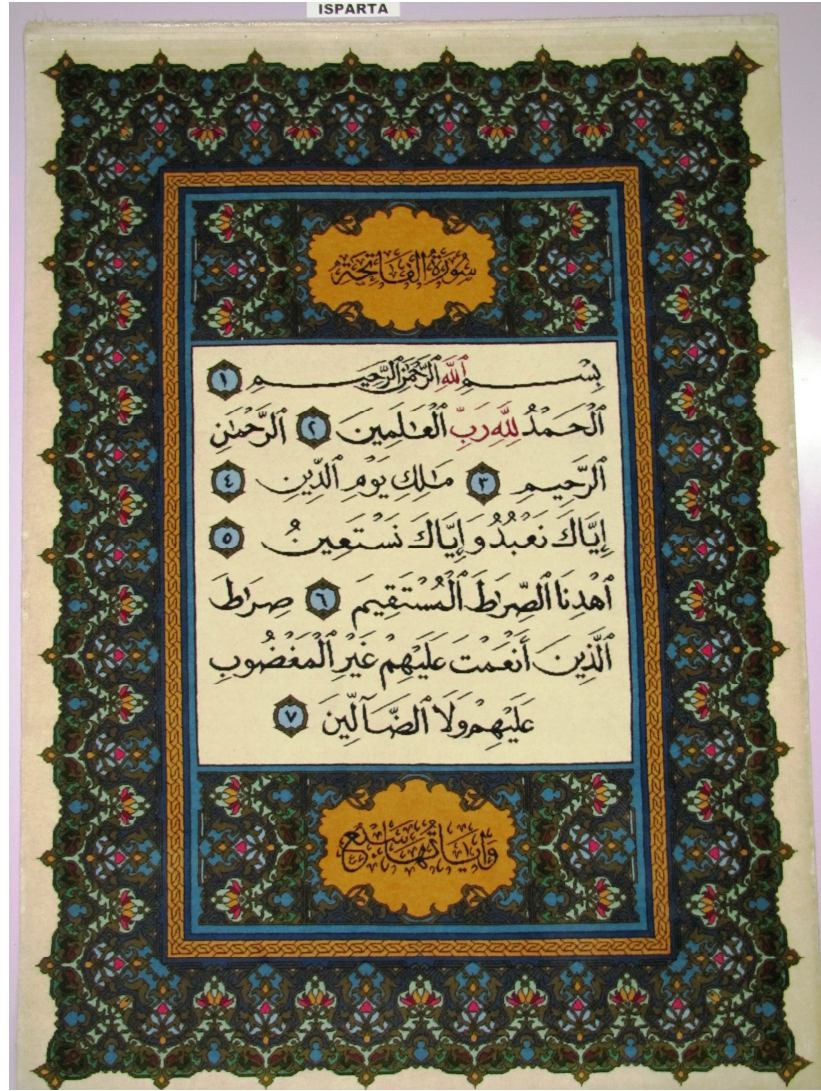 ISPARTA
سُورَةُ ٱلْفَاتِحَةِ
بِسْمِ ٱللَّهِ ٱلرَّحْمَٰنِ ٱلرَّحِيمِ ١
ٱلْحَمْدُ لِلَّهِ رَبِّ ٱلْعَٰلَمِينَ ٢ ٱلرَّحْمَٰنِ
ٱلرَّحِيمِ ٣ مَٰلِكِ يَوْمِ ٱلدِّينِ ٤
إِيَّاكَ نَعْبُدُ وَإِيَّاكَ نَسْتَعِينُ ٥
ٱهْدِنَا ٱلصِّرَٰطَ ٱلْمُسْتَقِيمَ ٦ صِرَٰطَ
ٱلَّذِينَ أَنْعَمْتَ عَلَيْهِمْ غَيْرِ ٱلْمَغْضُوبِ
عَلَيْهِمْ وَلَا ٱلضَّآلِّينَ ٧
وَآيَاتُهَا سَبْعٌ